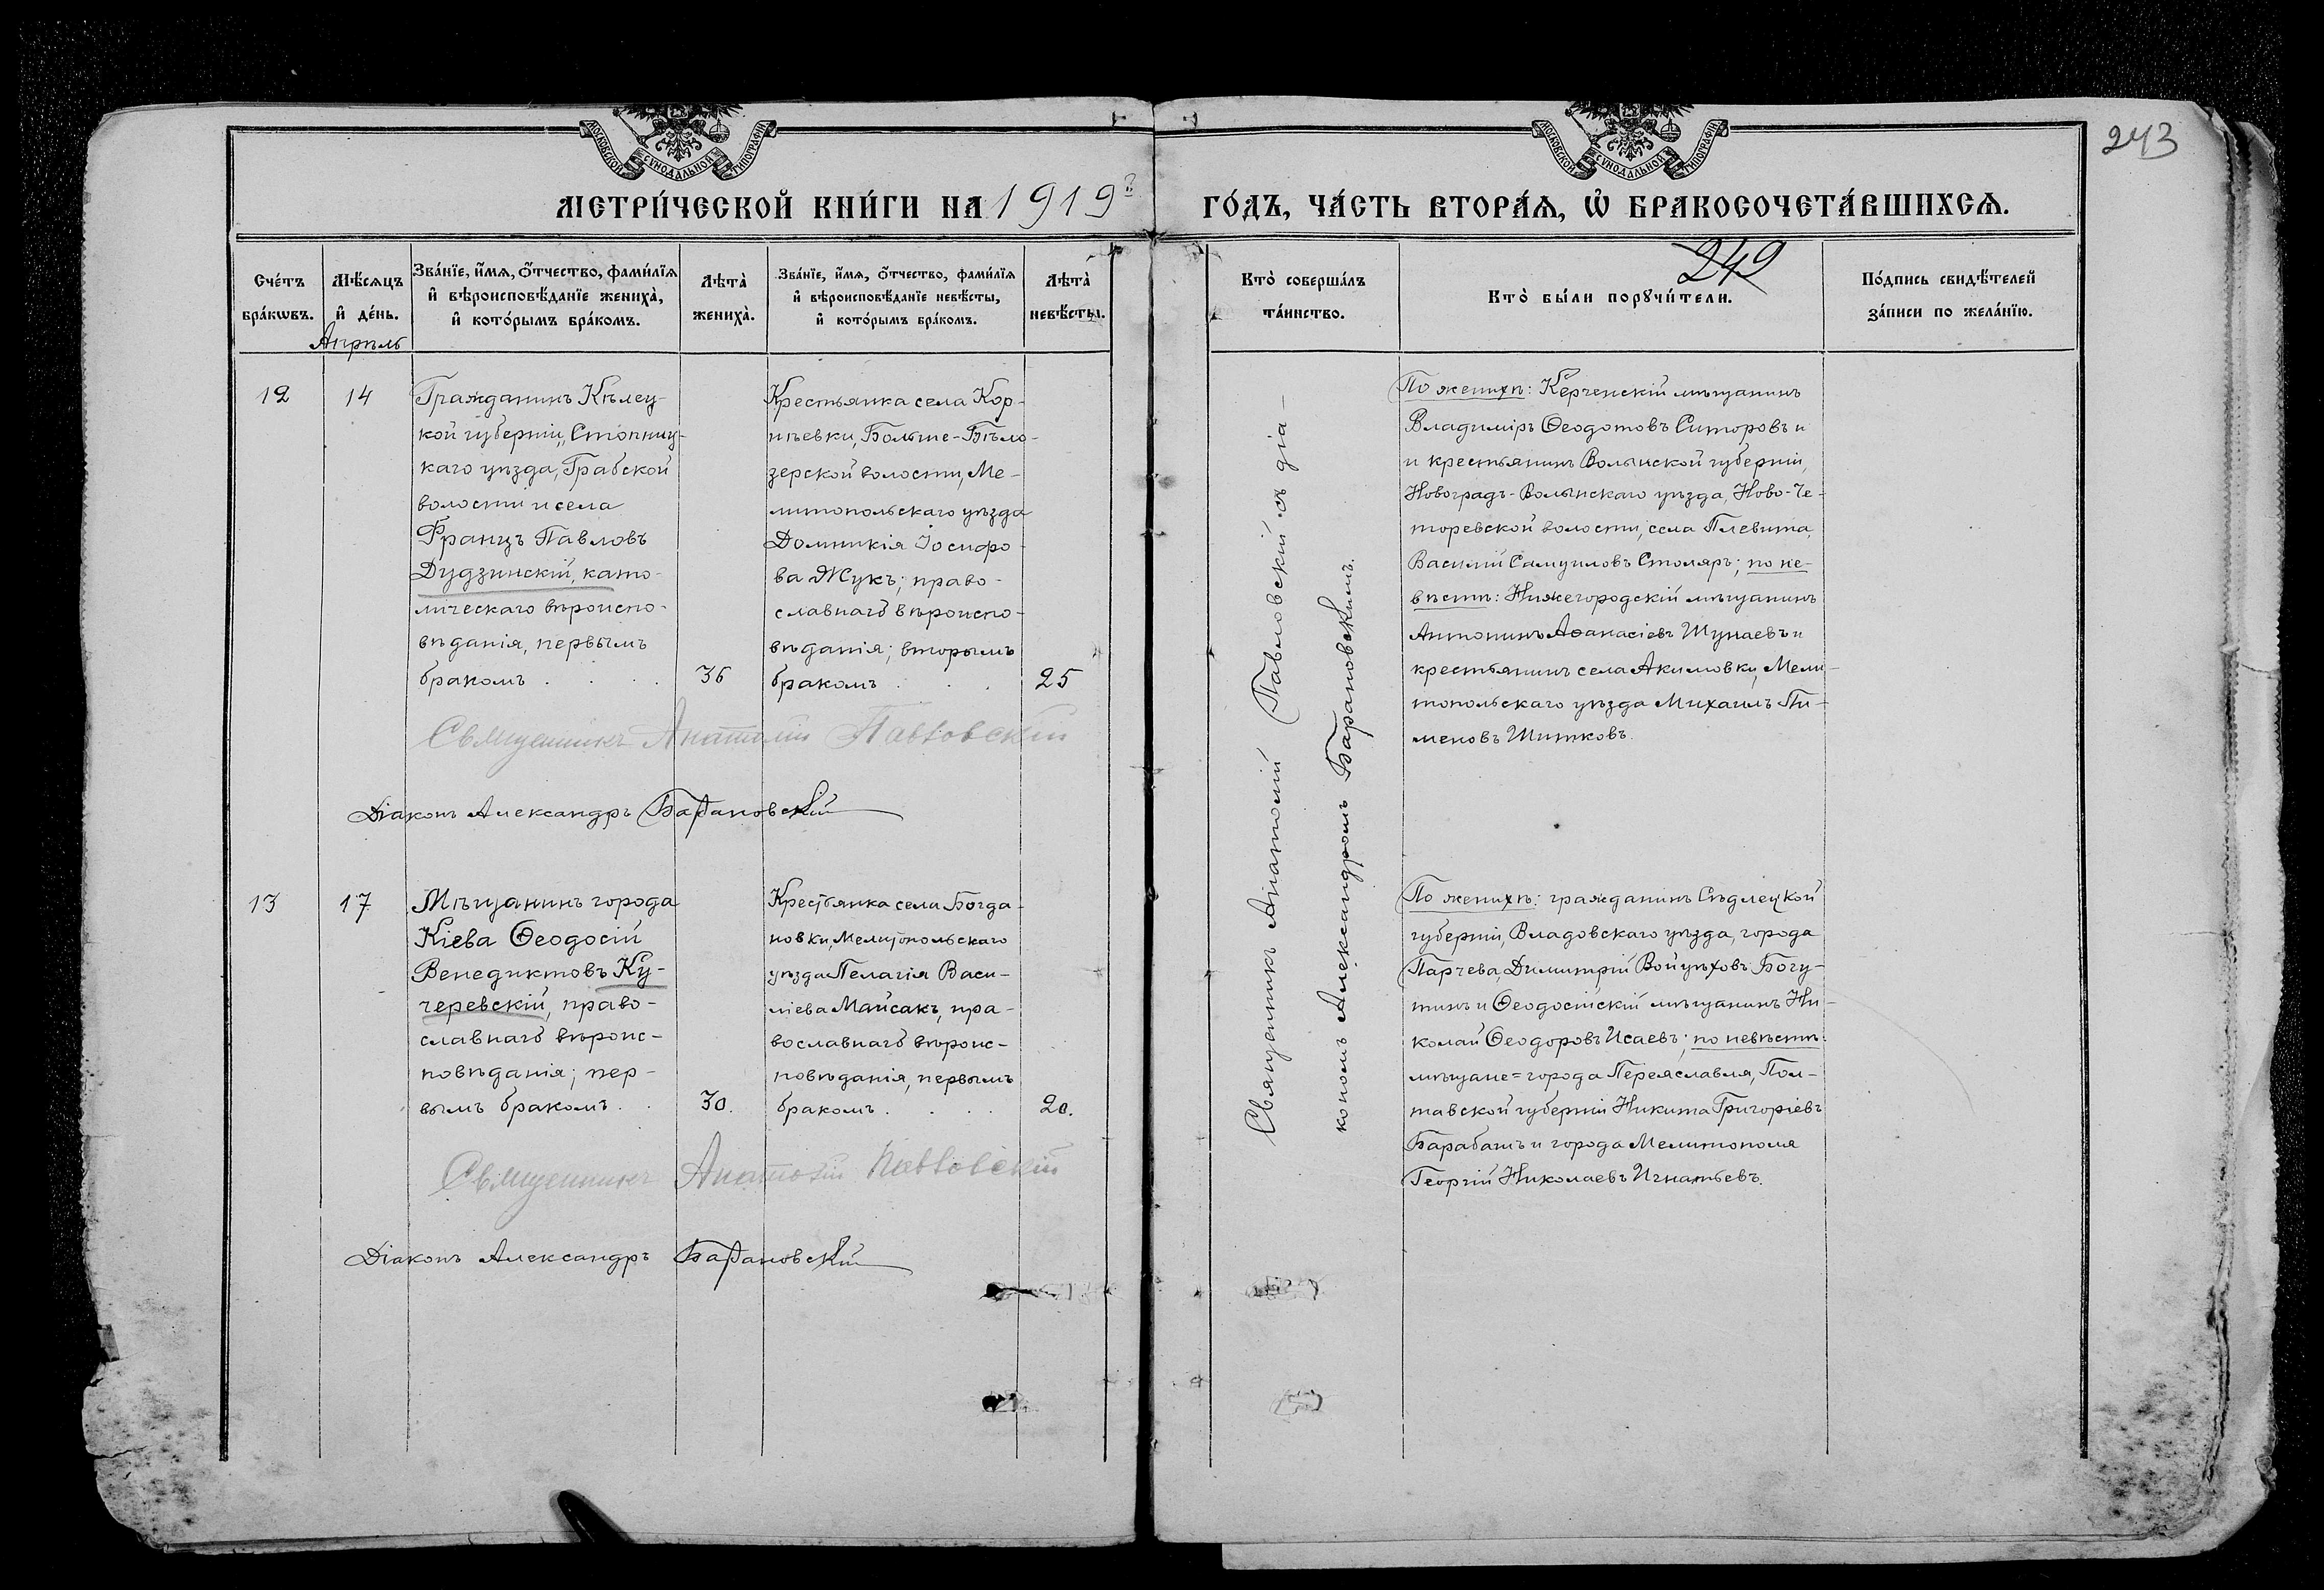 243
МОСКОВСКОЙ СѴНОДАЛЬНОЙ ТИПОГРАФІИ
МОСКОВСКОЙ СѴНОДАЛЬНОЙ ТИПОГРАФІИ
МЕТРИ́ЧЕСКОЙ КНИ́ГИ НА 1919 г
ГО́ДЪ, ЧА́СТЬ ВТОРА́Ѧ, Ѡ҆ БРАКОСОЧЕТА́ВШИХСѦ.
249
Сче́тъ бра́кѡвъ.
Мѣ́сѧцъ и҆ де́нь.
Зва́нїе, и҆́мѧ, ѻ҆́тчество, фами́лїѧ и҆ вѣроисповѣ́данїе жениха̀, и҆ кото́рымъ бра́комъ.
Лѣта̀ жениха̀.
Зва́нїе, и҆́мѧ, ѻ҆́тчество, фами́лїѧ и҆ вѣроисповѣ́данїе невѣ́сты, и҆ кото́рымъ бра́комъ.
Лѣта̀ невѣ́сты.
Кто̀ соверша́лъ та́инство.
Кто̀ бы́ли порꙋчи́тели.
По́дпись свидѣ́телей за́писи по жела́нїю.
Апрѣль
12
14
Гражданинъ Кѣлец-
кой губерніи, Стопниц-
каго уѣзда, Грабской
волости и села
Францъ Павловъ
Дудзинскій, като-
лическаго вѣроиспо-
вѣданія, первымъ
бракомъ . . . .
36
Крестьянка села Кор-
нѣевки, Больше-Бѣло-
зерской волости, Ме-
литопольскаго уѣзда
Домникія Іосифо-
ва Жукъ; право-
славнаго вѣроиспо-
вѣданія; вторымъ
бракомъ . . .
25
Священникъ Анатолій Павловскій
Діаконъ Александръ Барановскій
Священникъ Анатолій Павловскій съ діа-
кономъ Александромъ Барановскимъ.
По женихѣ: Керченскій мѣщанинъ
Владиміръ Ѳеодотовъ Ситоровъ и
и крестьянинъ Волынской губерніи,
Новоградъ-Волынскаго уѣзда, Ново-Че-
торевской волости, села Плевита,
Василій Самуиловъ Столяръ; по не-
вѣстѣ: Нижегородскій мѣщанинъ
Антонинъ Аѳанасіевъ Шунаевъ и
крестьянинъ села Акимовки, Мели-
топольскаго уѣзда Михаилъ Пи-
меновъ Шитковъ.
13
17
Мѣщанинъ города
Кіева Ѳеодосій
Венедиктовъ Ку-
черевскій, право-
славнаго вѣроис-
повѣданія; пер-
вымъ бракомъ . .
30.
Крестьянка села Богда-
новки, Мелитопольскаго
уѣзда Пелагія Васи-
ліева Майсакъ, пра-
вославнаго вѣроис-
повѣданія, первымъ
бракомъ . . . .
20.
Священникъ Анатолій Павловскій
Діаконъ Александръ Барановскій
По женихѣ: гражданинъ Сѣдлецкой
губерніи, Владовскаго уѣзда, города
Парчева, Димитрій Войцѣховъ Богу-
тинъ и Ѳеодосійскій мѣщанинъ Ни-
колай Ѳеодоровъ Исаевъ; по невѣстѣ:
мѣщане = города Переяславля, Пол-
тавской губерніи Никита Григоріевъ
Барабашъ и города Мелитополя
Георгій Николаевъ Игнатьевъ.